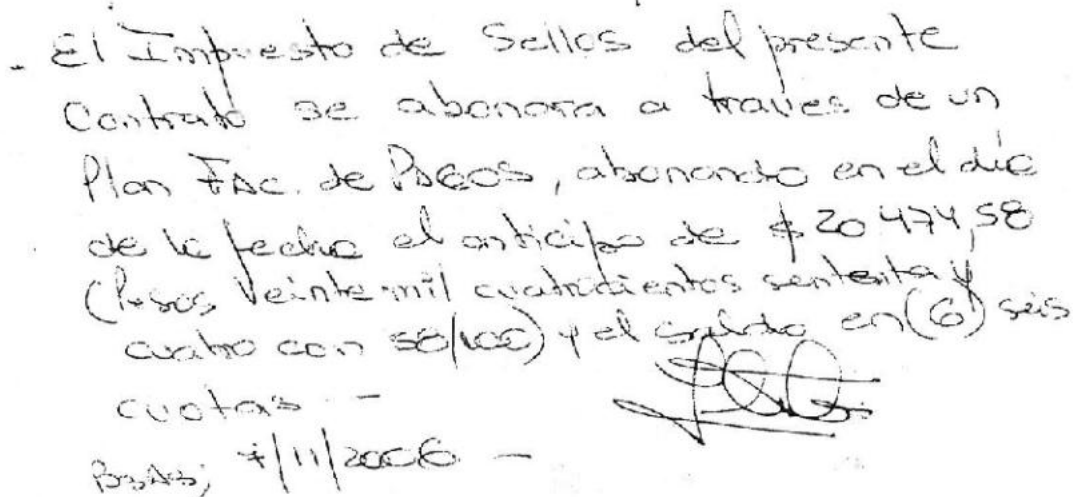 El Impuesto de Sellos del presente
Contrato se abonara a traves de un
Plan Fac. de Pagos, abonando en el día
de la fecha el anticipo de $ 20 474,58
(Pesos Veinte mil cuatrocientos sententa y
cuatro con 58/100) y el saldo en (6) seis
cuotas. -
Bs.As; 7/11/2006 -